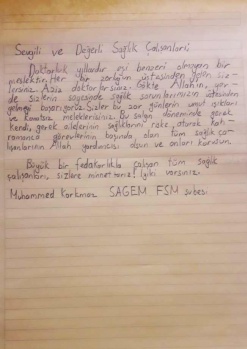 Sevgili ve Değerli Sağlık Çalışanları;
Doktorluk yıllardır eşi benzeri olmayan bir
meslektir. Her bir zorluğun üstesinden gelen siz-
lersiniz. Aziz doktorlarsınız. Gökte Allah'ın, yer-
de sizlerin sayesinde sağlık sorunlarımızın üstesinden
gelmeyi başarıyoruz. Sizler bu zor günlerin umut ışıkları
ve kanatsız meleklerisiniz. Bu salgın döneminde gerek
kendi, gerek ailelerinin sağlıklarını riske atarak kah-
ramanca görevlerinin başında olan tüm sağlık ça-
lışanlarının Allah yardımcısı olsun ve onları korusun.
Büyük bir fedakarlıkla çalışan tüm sağlık
çalışanları, sizlere minnettarız! İyiki varsınız.
Muhammed Korkmaz SAGEM FSM şubesi